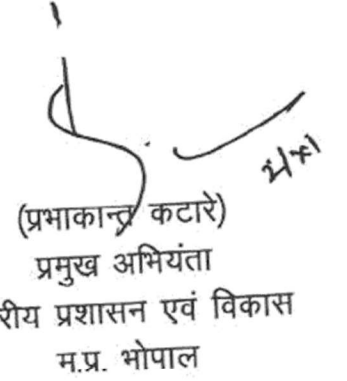 (प्रभाकान्त कटारे)
प्रमुख अभियंता
रीय प्रशासन एवं विकास
म.प्र. भोपाल